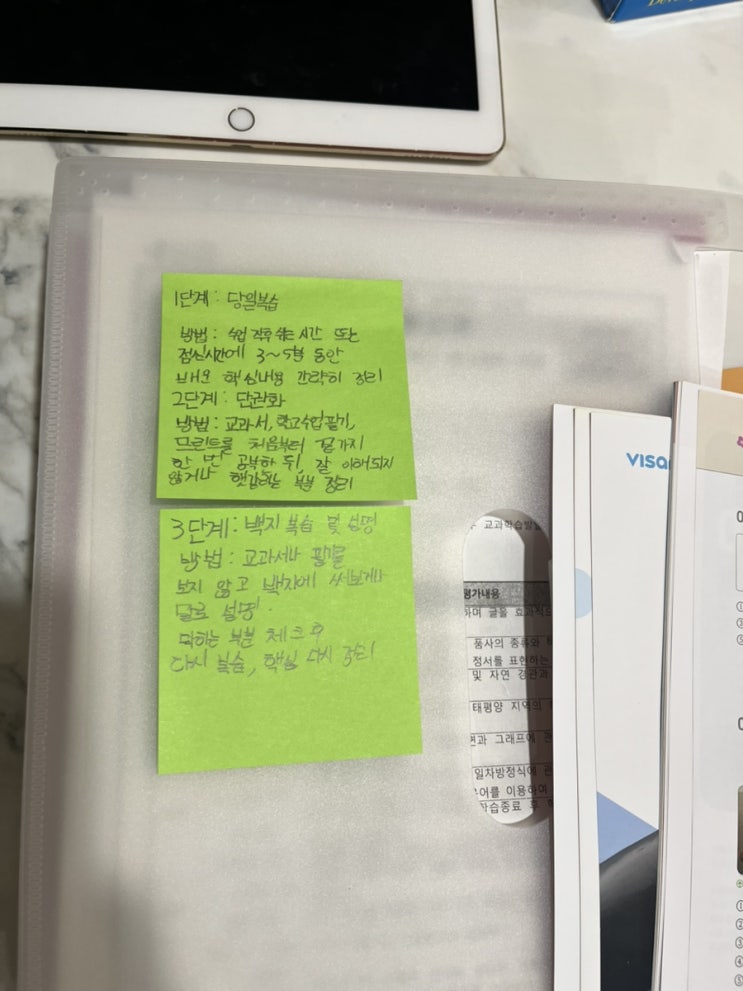 1단계: 당일복습
방법: 수업 직후 쉬는 시간 또는
점심시간에 3~5분 동안
배운 핵심내용 간략히 정리
2단계: 단권화
방법: 교과서, 학교수업필기,
프린트를 처음부터 끝가지
한 번 공부한 뒤, 잘 이해되지
않거나 햇갈리는 부분 정리
3단계: 백지 복습 및 설명
방법: 교과서나 필기를
보지 않고 백지에 써보거나
말로 설명.
막히는 부분 체크 후
다시 복습, 핵심 다시 정리
교과학습발달
평가내용
하며 글을 효과적으
품사의 종류와
정서를 표현하는
및 자연 경관과
태평양 지역의
면과 그래프에
일차방정식에 관
어를 이용하며
학습종료 후
VISA